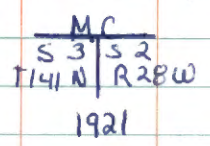 MC
S 3 | S 2
T141 N | R28W
1921